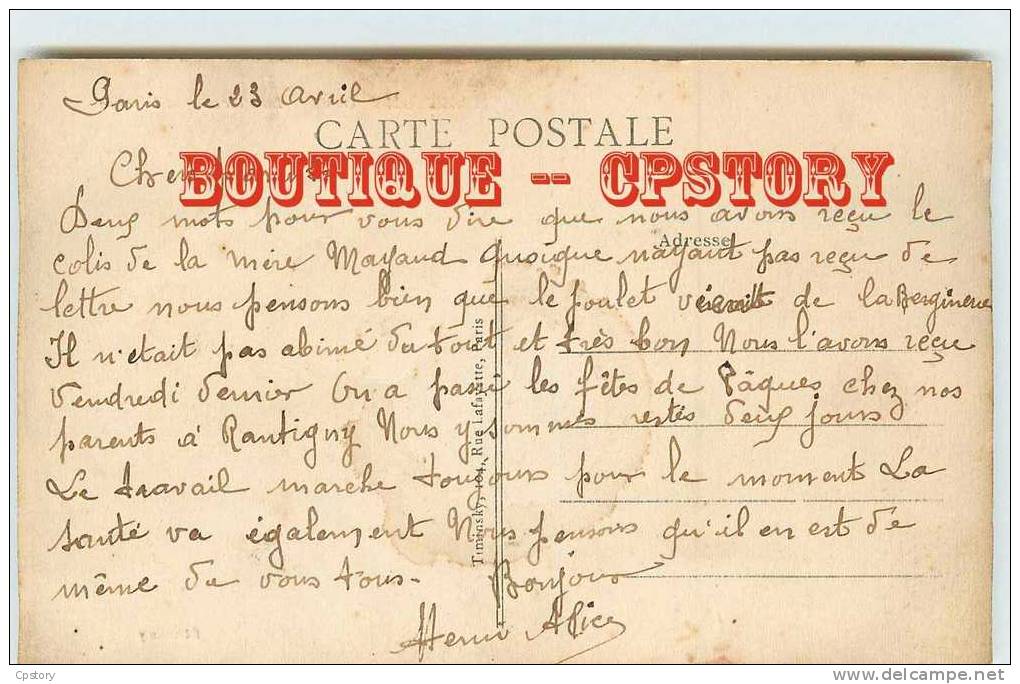 Paris le 23 avril
CARTE POSTALE
BOUTIQUE -- CPSTORY
Deux mots pour vous dire que nous avons reçu le
Adresse
colis de la mère Mayaud Quoique nayant pas reçu de
lettre nous pensons bien que le poulet de la
Il n'etait pas abimé du tout et très bon Nous l'avons reçu
Vendredi dernier On a passé les fêtes de Pâques chez nos
parents à Rantigny Nous y sommes restés deux jours
Le travail marche toujours pour le moment La
santé va également Nous pensons qu'il en est de
même de vous tous. Bonjour
Henri Alice
Timinsky, 104, Rue Lafayette, Paris
Cpstory
delcampe.net